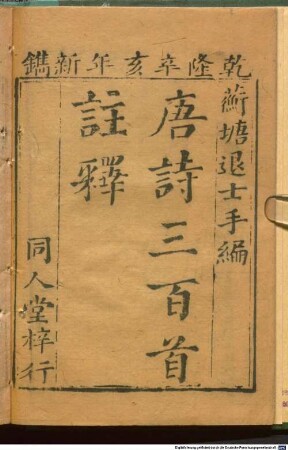 乾隆辛亥年新鐫
蘅塘退士手編
唐詩三百首
註釋
同人堂梓行